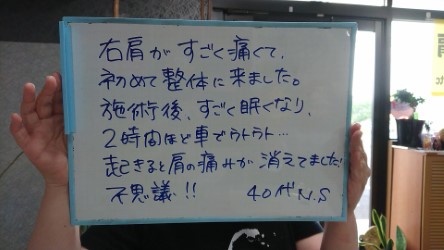 右肩がすごく痛くて、
初めて整体に来ました。
施術後、すごく眠くなり、
2時間ほど車でウトウト…
起きると肩の痛みが消えてました!
不思議!! 40代N.S